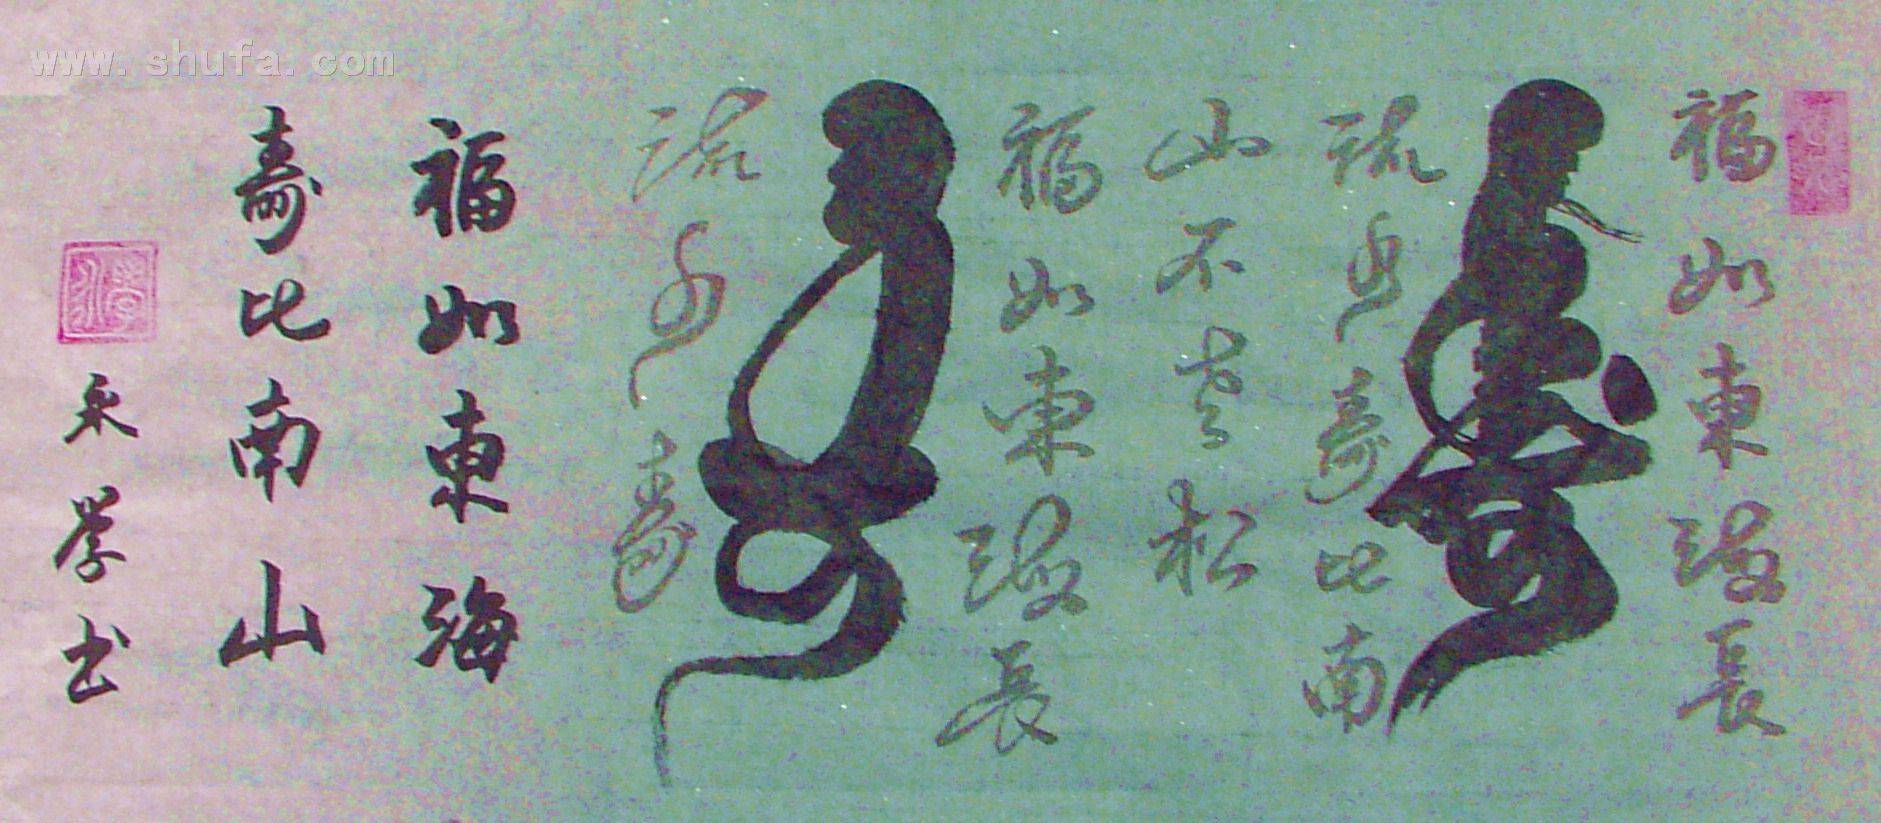 福如東海長
流水壽比南
山不老松
福如東海長
流水壽
福如東海
壽比南山
永学书
www.shufa.com